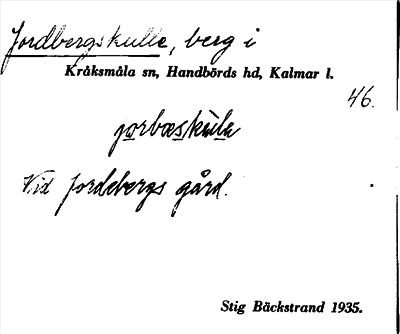 Jordbergskulle, berg i
Kråksmåla sn, Handbörds hd, Kalmar l.
46.
jorbæskula
Vid Jordebergs gård.
Stig Bäckstrand 1935.